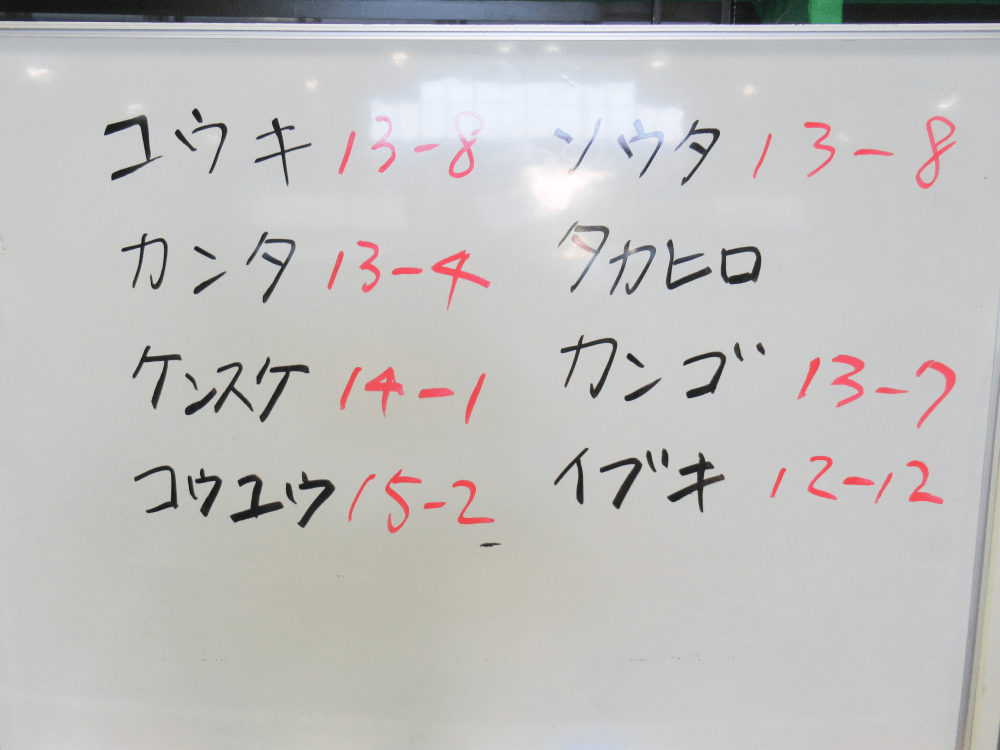 コウキ 13-8 ソウタ 13-8
カンタ 13-4 タカヒロ
ケンスケ 14-1 カンゴ 13-7
コウユウ 15-2 イブキ 12-12